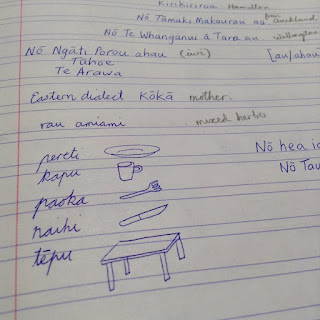 Kirikiriroa Hamilton
Nō Tāmaki Makaurau au Auckland
Nō Te Whanganui ā Tara au Wellington
Nō Ngāti Porou ahau (iwi) [au/ahau
Tahoe
Te Arawa
Eastern dialect Kōkā mother.
rau amiami mixed herbs
pereti
kapu
paoka
naihi
tēpu
Nō hea
Nō Tau